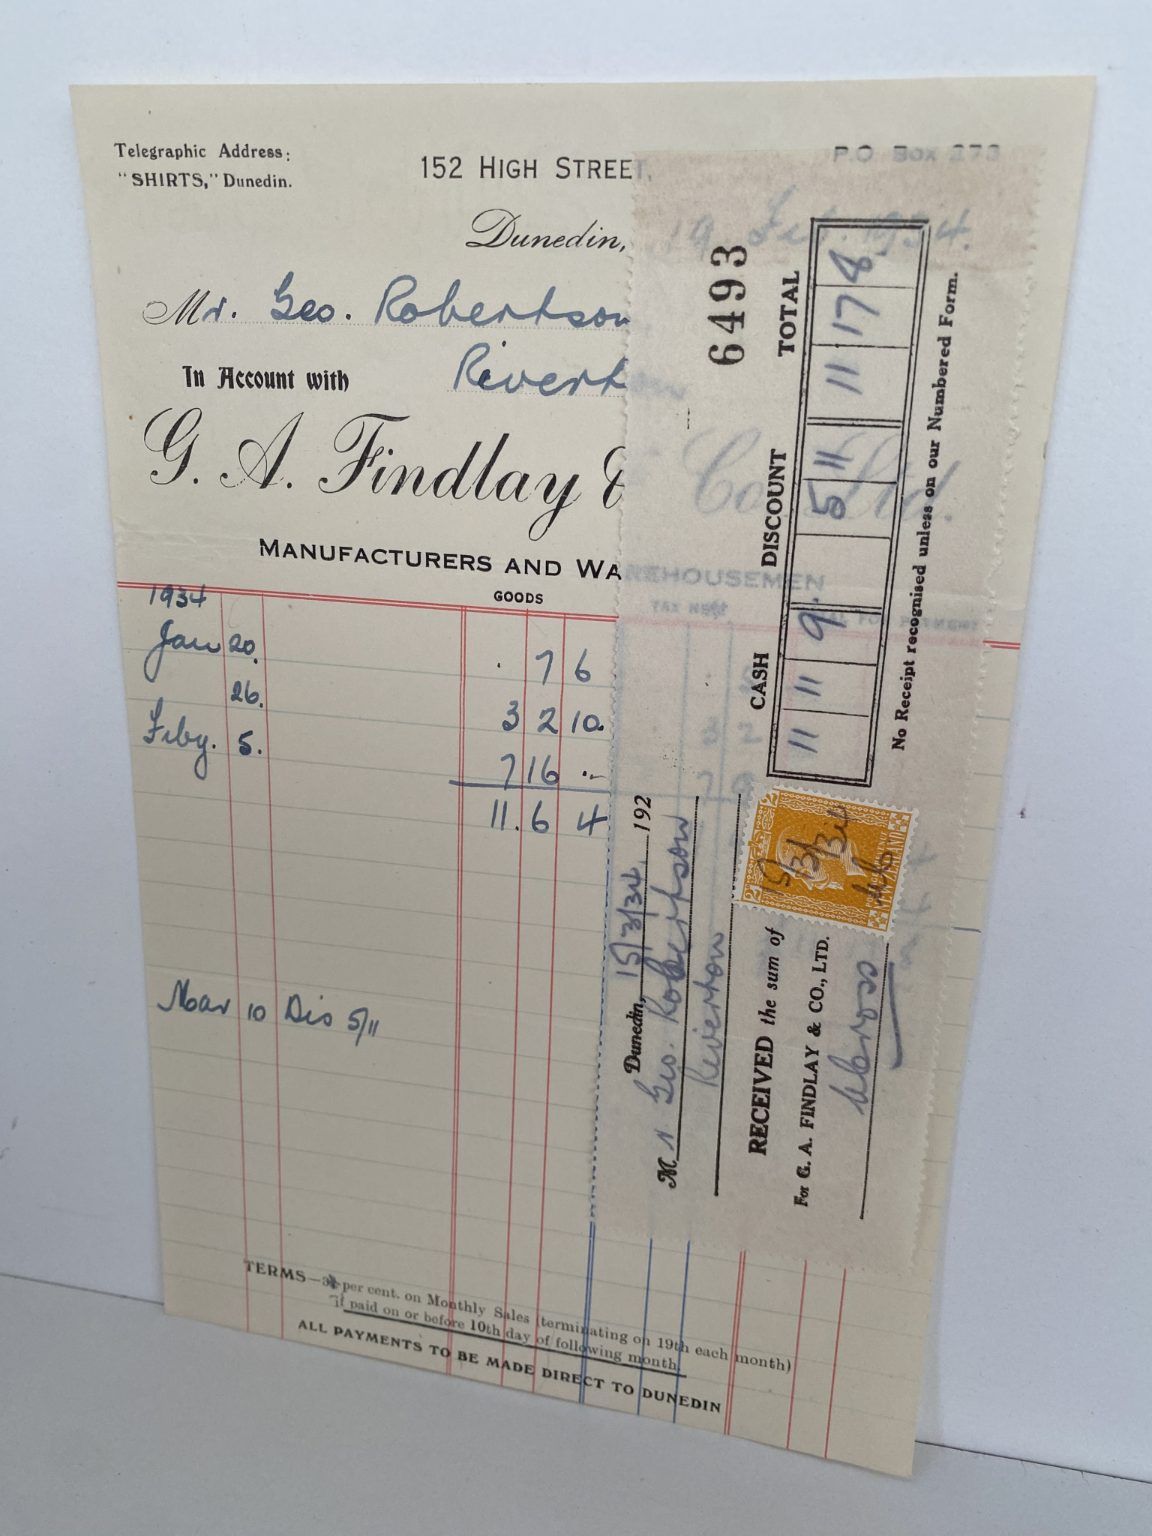 Telegraphic Address:
"SHIRTS," Dunedin.
152 HIGH STREET,
P.O Box 273
Dunedin, 19 Feb. 1934.
Mr. Geo. Robertson
In Account with Riverton
G. A. Findlay & Co. Ltd.
MANUFACTURERS AND WAREHOUSEMEN
GOODS
1934
Jan 20. 7 6
26. 3 2 10.
Feby. 5. 7 16 ..
11. 6 4
Mar 10 Dis 5/11
TERMS— per cent. on Monthly Sales (terminating on 19th each month)
If paid on or before 10th day of following month.
ALL PAYMENTS TO BE MADE DIRECT TO DUNEDIN
6493
Dunedin, 15/3/34 192
Mr Geo. Robertson
Riverton
RECEIVED the sum of
For G. A. FINDLAY & CO., LTD.
15/3/34
CASH DISCOUNT TOTAL
11 11 9. 5 11 11 17 8
No Receipt recognised unless on our Numbered Form.